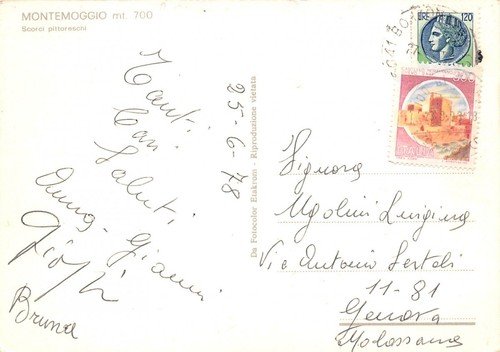 MONTEMOGGIO mt. 700
Scorci pittoreschi
Tanti
Cari
Saluti
Anna - Gianni
Bruna
25-6-78
Da Fotocolor Etakrom - Riproduzione vietata
LIRE 120
ITALIA
Signora
Ugolini Luigina
Via Antonio Sertoli
11-81
Genova
Molassana